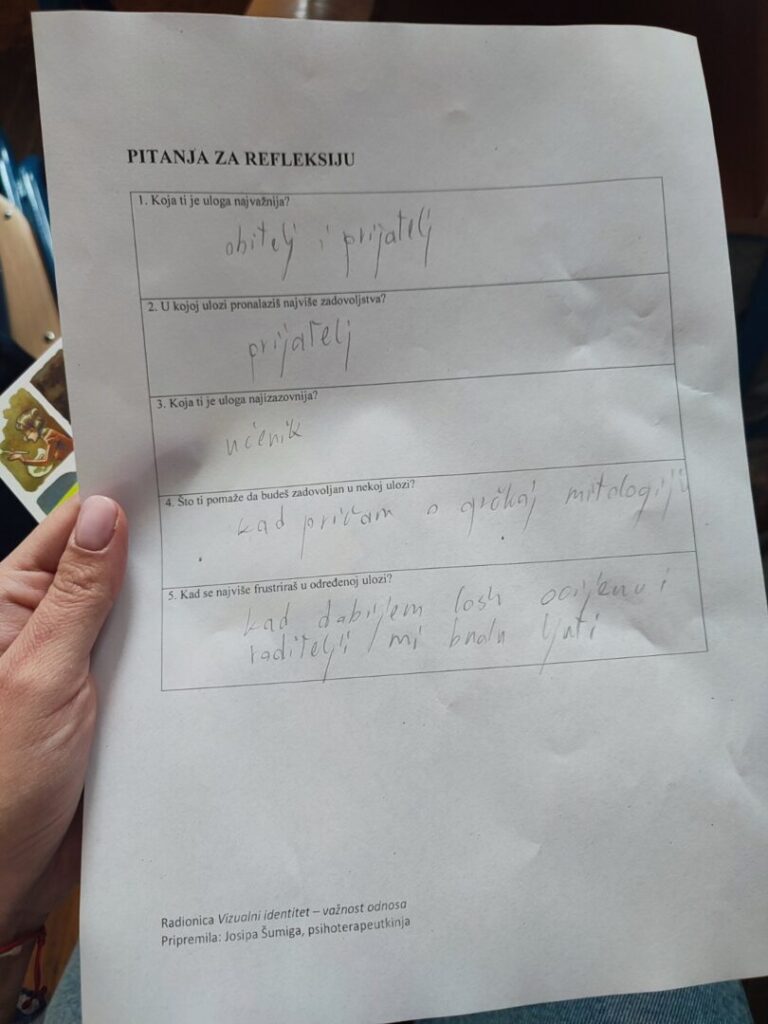 PITANJA ZA REFLEKSIJU
1. Koja ti je uloga najvažnija?
obitelj i prijatelj
2. U kojoj ulozi pronalaziš najviše zadovoljstva?
prijatelj
3. Koja ti je uloga najizazovnija?
učenik
4. Što ti pomaže da budeš zadovoljan u nekoj ulozi?
kad pričam o grčkoj mitologiji
5. Kad se najviše frustriraš u određenoj ulozi?
kad dobijem losu ocijenu i
roditelji mi budu ljuti
Radionica Vizualni identitet – važnost odnosa
Pripremila: Josipa Šumiga, psihoterapeutkinja